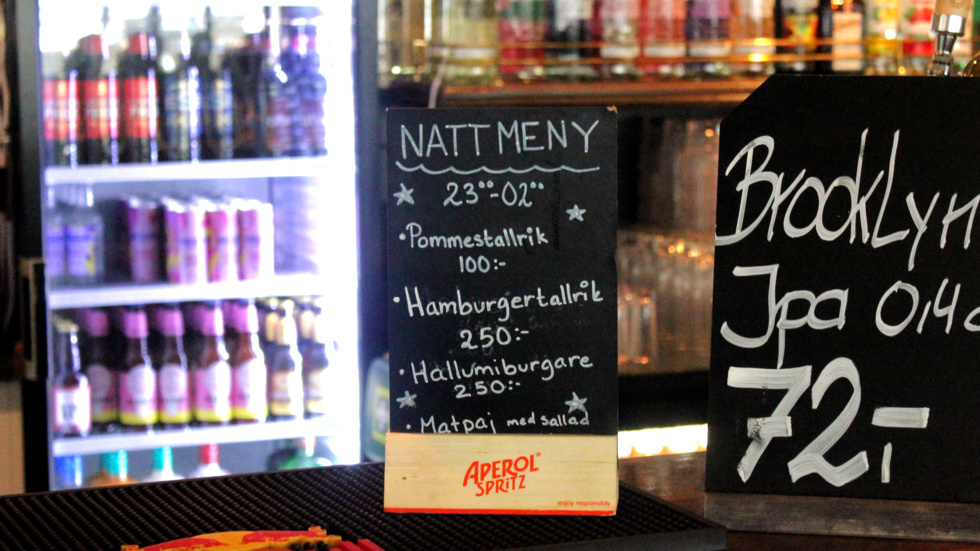 NATTMENY
23°°-02°°
•Pommestallrik
100:-
•Hamburgertallrik
250:-
•Hallumiburgare
250:-
•Matpaj med sallad
APEROL
SPRITZ
enjoy responsibly
Brooklyn
Ipa 0,4
72,-